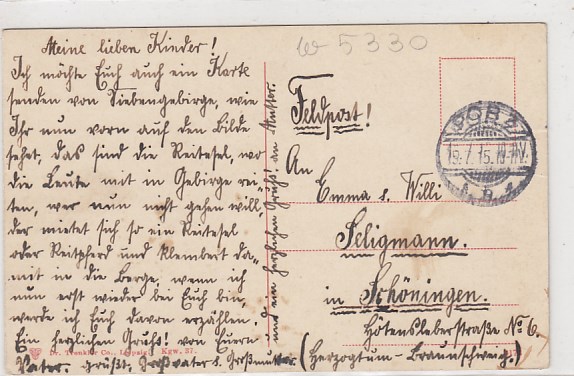 Meine lieben Kinder!
Ich möchte Euch auch ein Karte
senden von Siebengebirge, wie
Ihr nun vorn auf den Bilde
sehet, das sind die Reitesel, wo
die Leute mit in Gebirge rei-
ten, wer nun nicht gehen will,
der mietet sich so ein Reitesel
oder Reitpferd und klembert da-
mit in die Berge, wenn ich
nun erst wieder bei Euch bin,
werde ich Euch davon erzählen.
Ein herzlichen Gruß! von Euern
Vater. Grüßt. Großvater s. Großmutter.
und ein herzlichen Gruß an Mutter.
Dr. Trenkler Co., Leipzig. Kgw. 27.
W 5330
Feldpost!
19.7.15.
An
Emma s. Willi
Seligmann.
in Schöningen.
Hötenslebertraße No 6.
(Herzogtum - Braunschweig.)